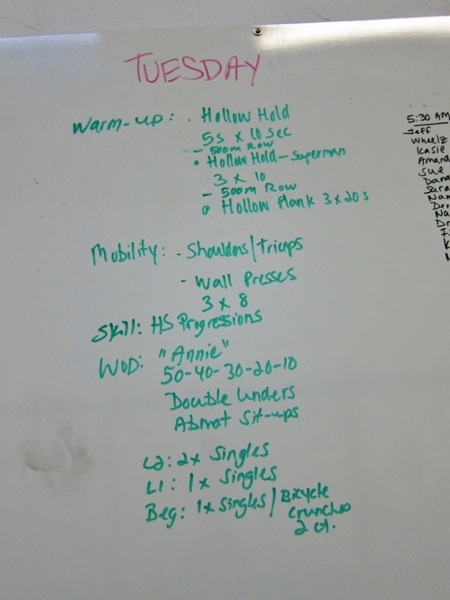 TUESDAY
Warm-up: . Hollow Hold
5s x 10 sec
- 500m Row
• Hollow Hold - Superman
3 x 10
- 500m Row
• Hollow Plank 3x20s
Mobility: - Shoulders/Triceps
- Wall Presses
3 x 8
Skill: HS Progressions
WOD: "Annie"
50-40-30-20-10
Double Unders
Abmat Sit-ups
L2: 2x Singles
L1: 1x Singles
Beg: 1x Singles/Bicycle
crunches
2 ct.
5:30 AM
Jeff
Wheelz
Kasie
Amand
Sue
Dana
Sara